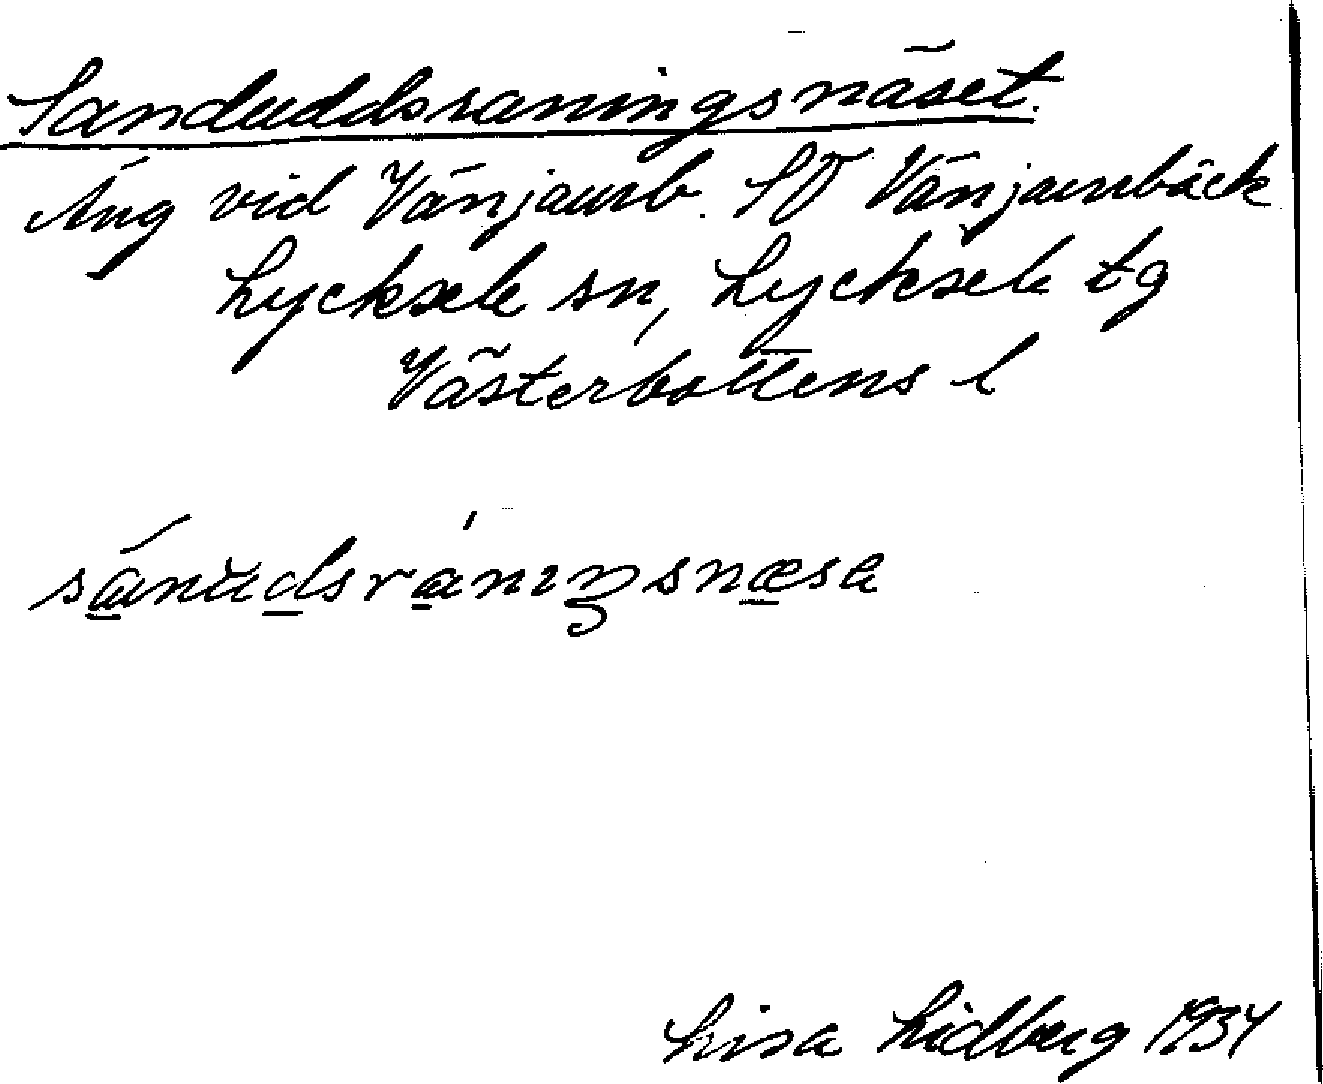 Sanduddsraningsnäset.
Äng vid Vänjaurb. SV Vänjaurbäck
Lycksele sn, Lycksele tg
Västerbottens l
sánŭdsrániŋsnæsa
Lisa Lidberg 1934